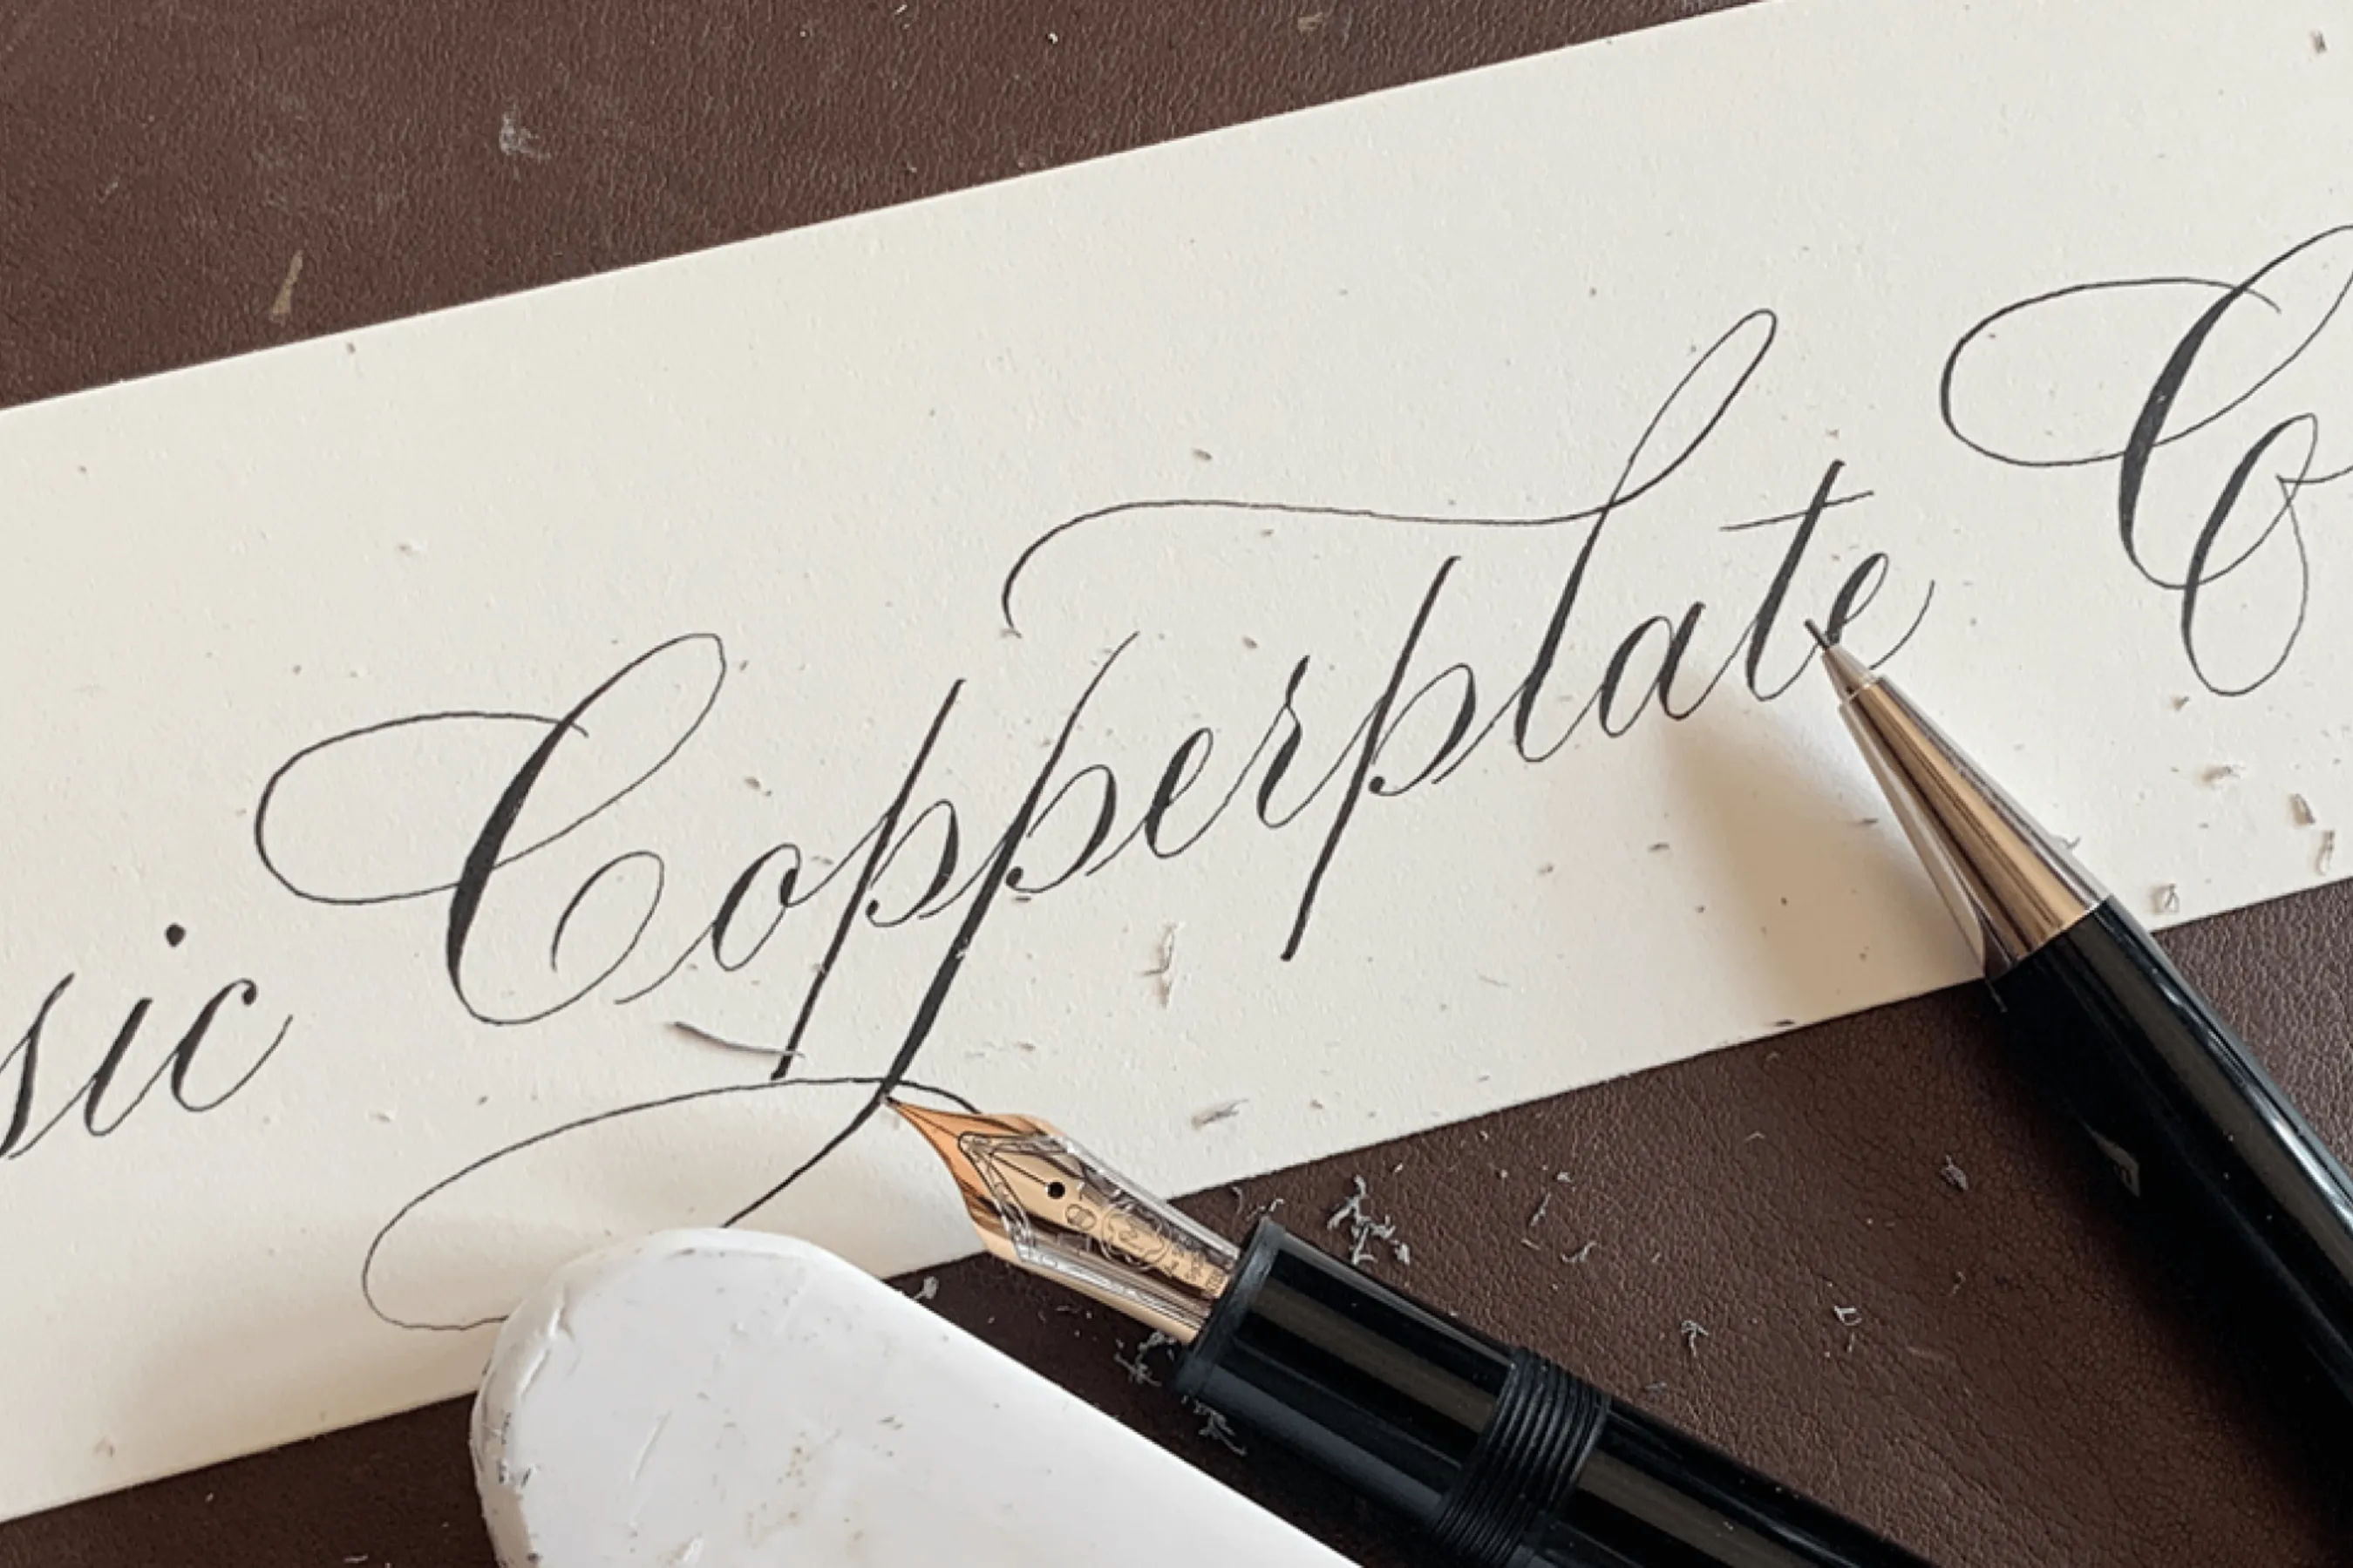 sic Copperplate Co